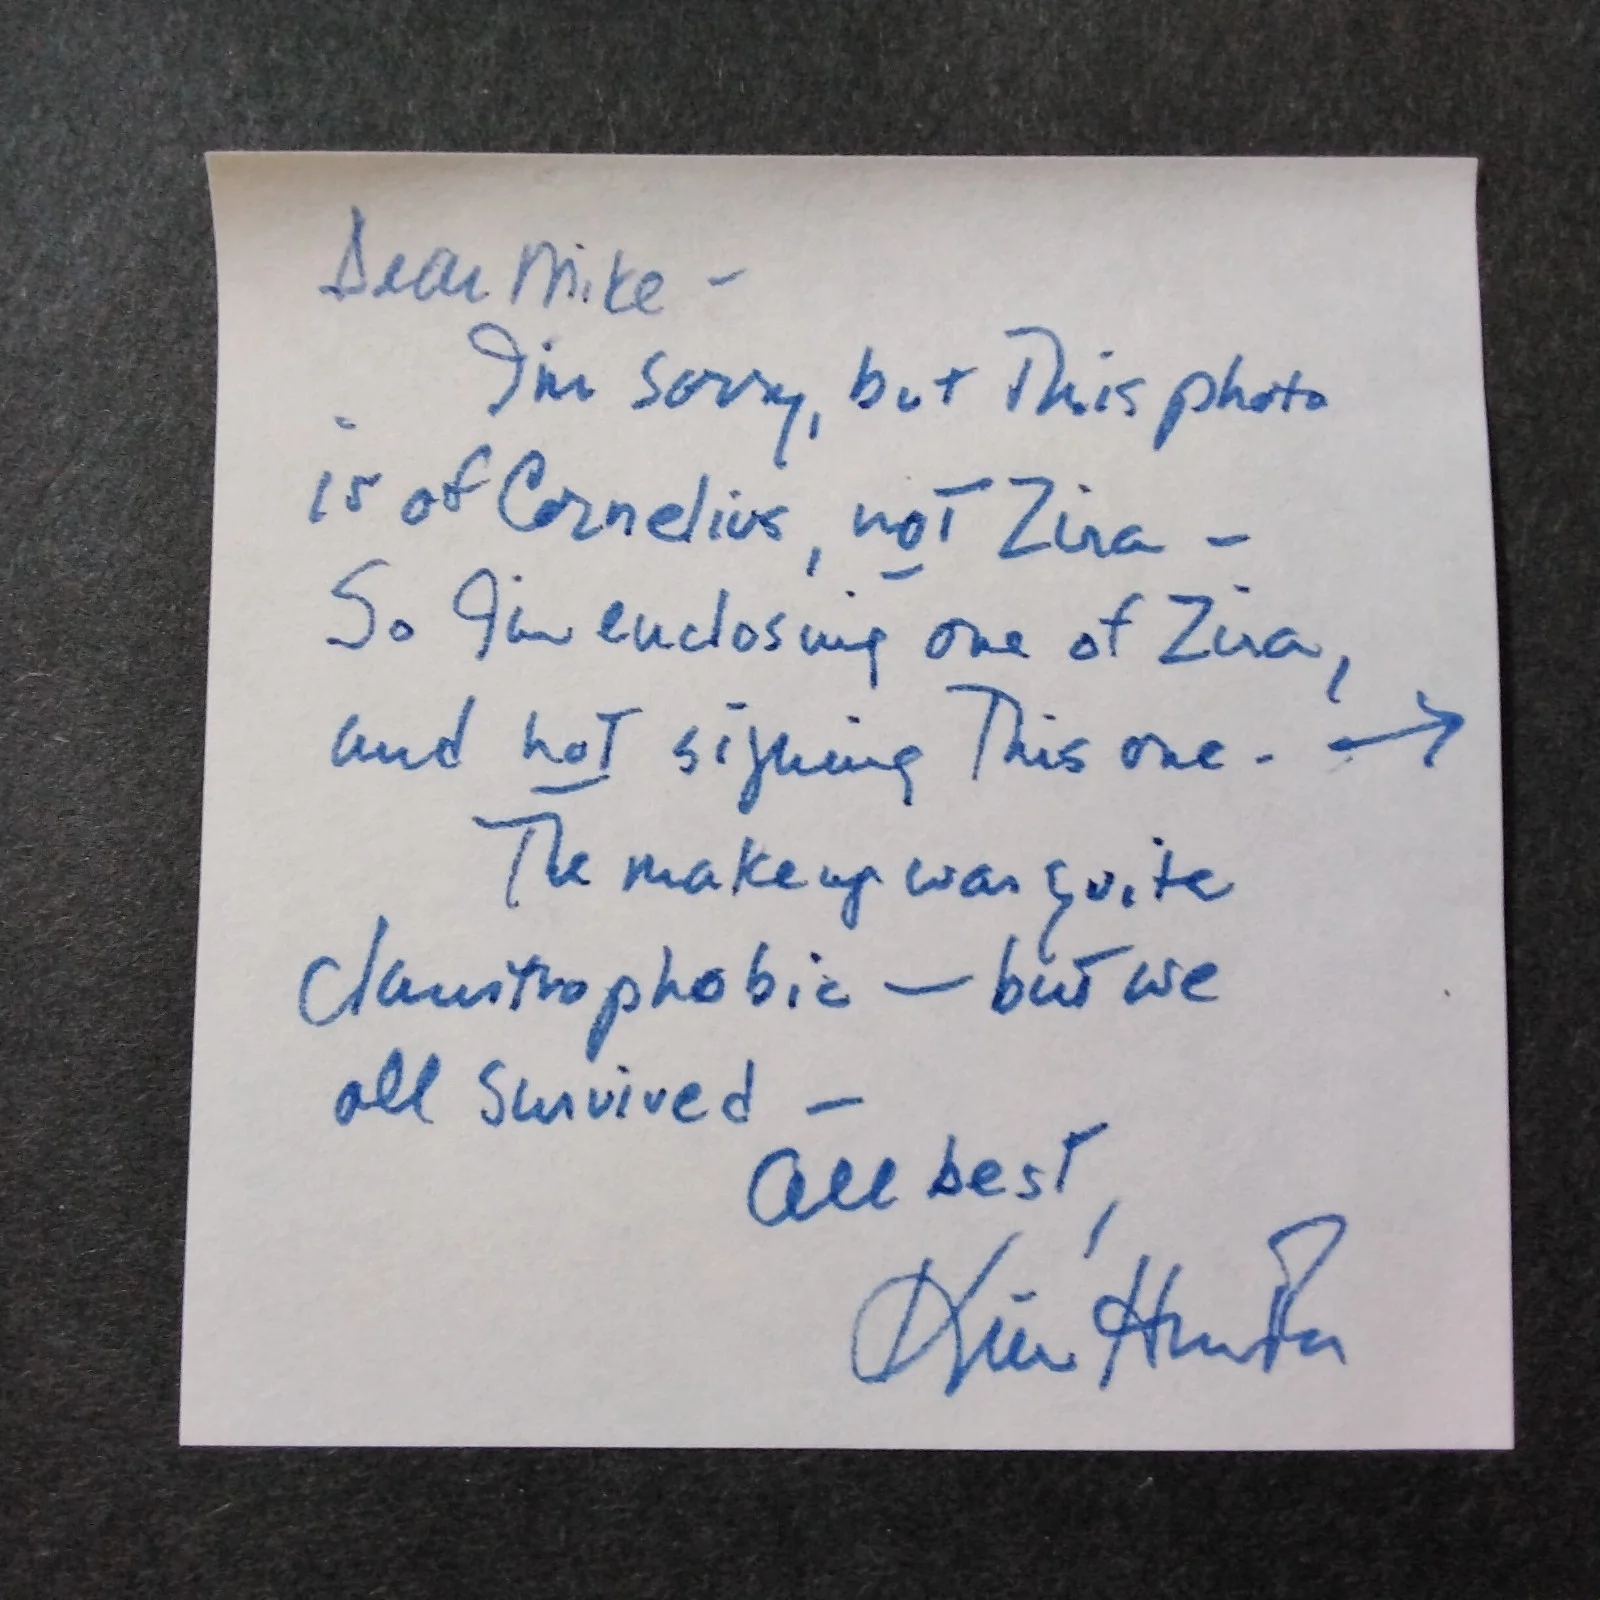 Dear Mike –
I'm sorry, but This photo
is of Cornelius, not Zira –
So I'm enclosing one of Zira,
and not signing This one. – →
The makeup was quite
claustrophobic – but we
all survived –
All best,
Kim Hunter